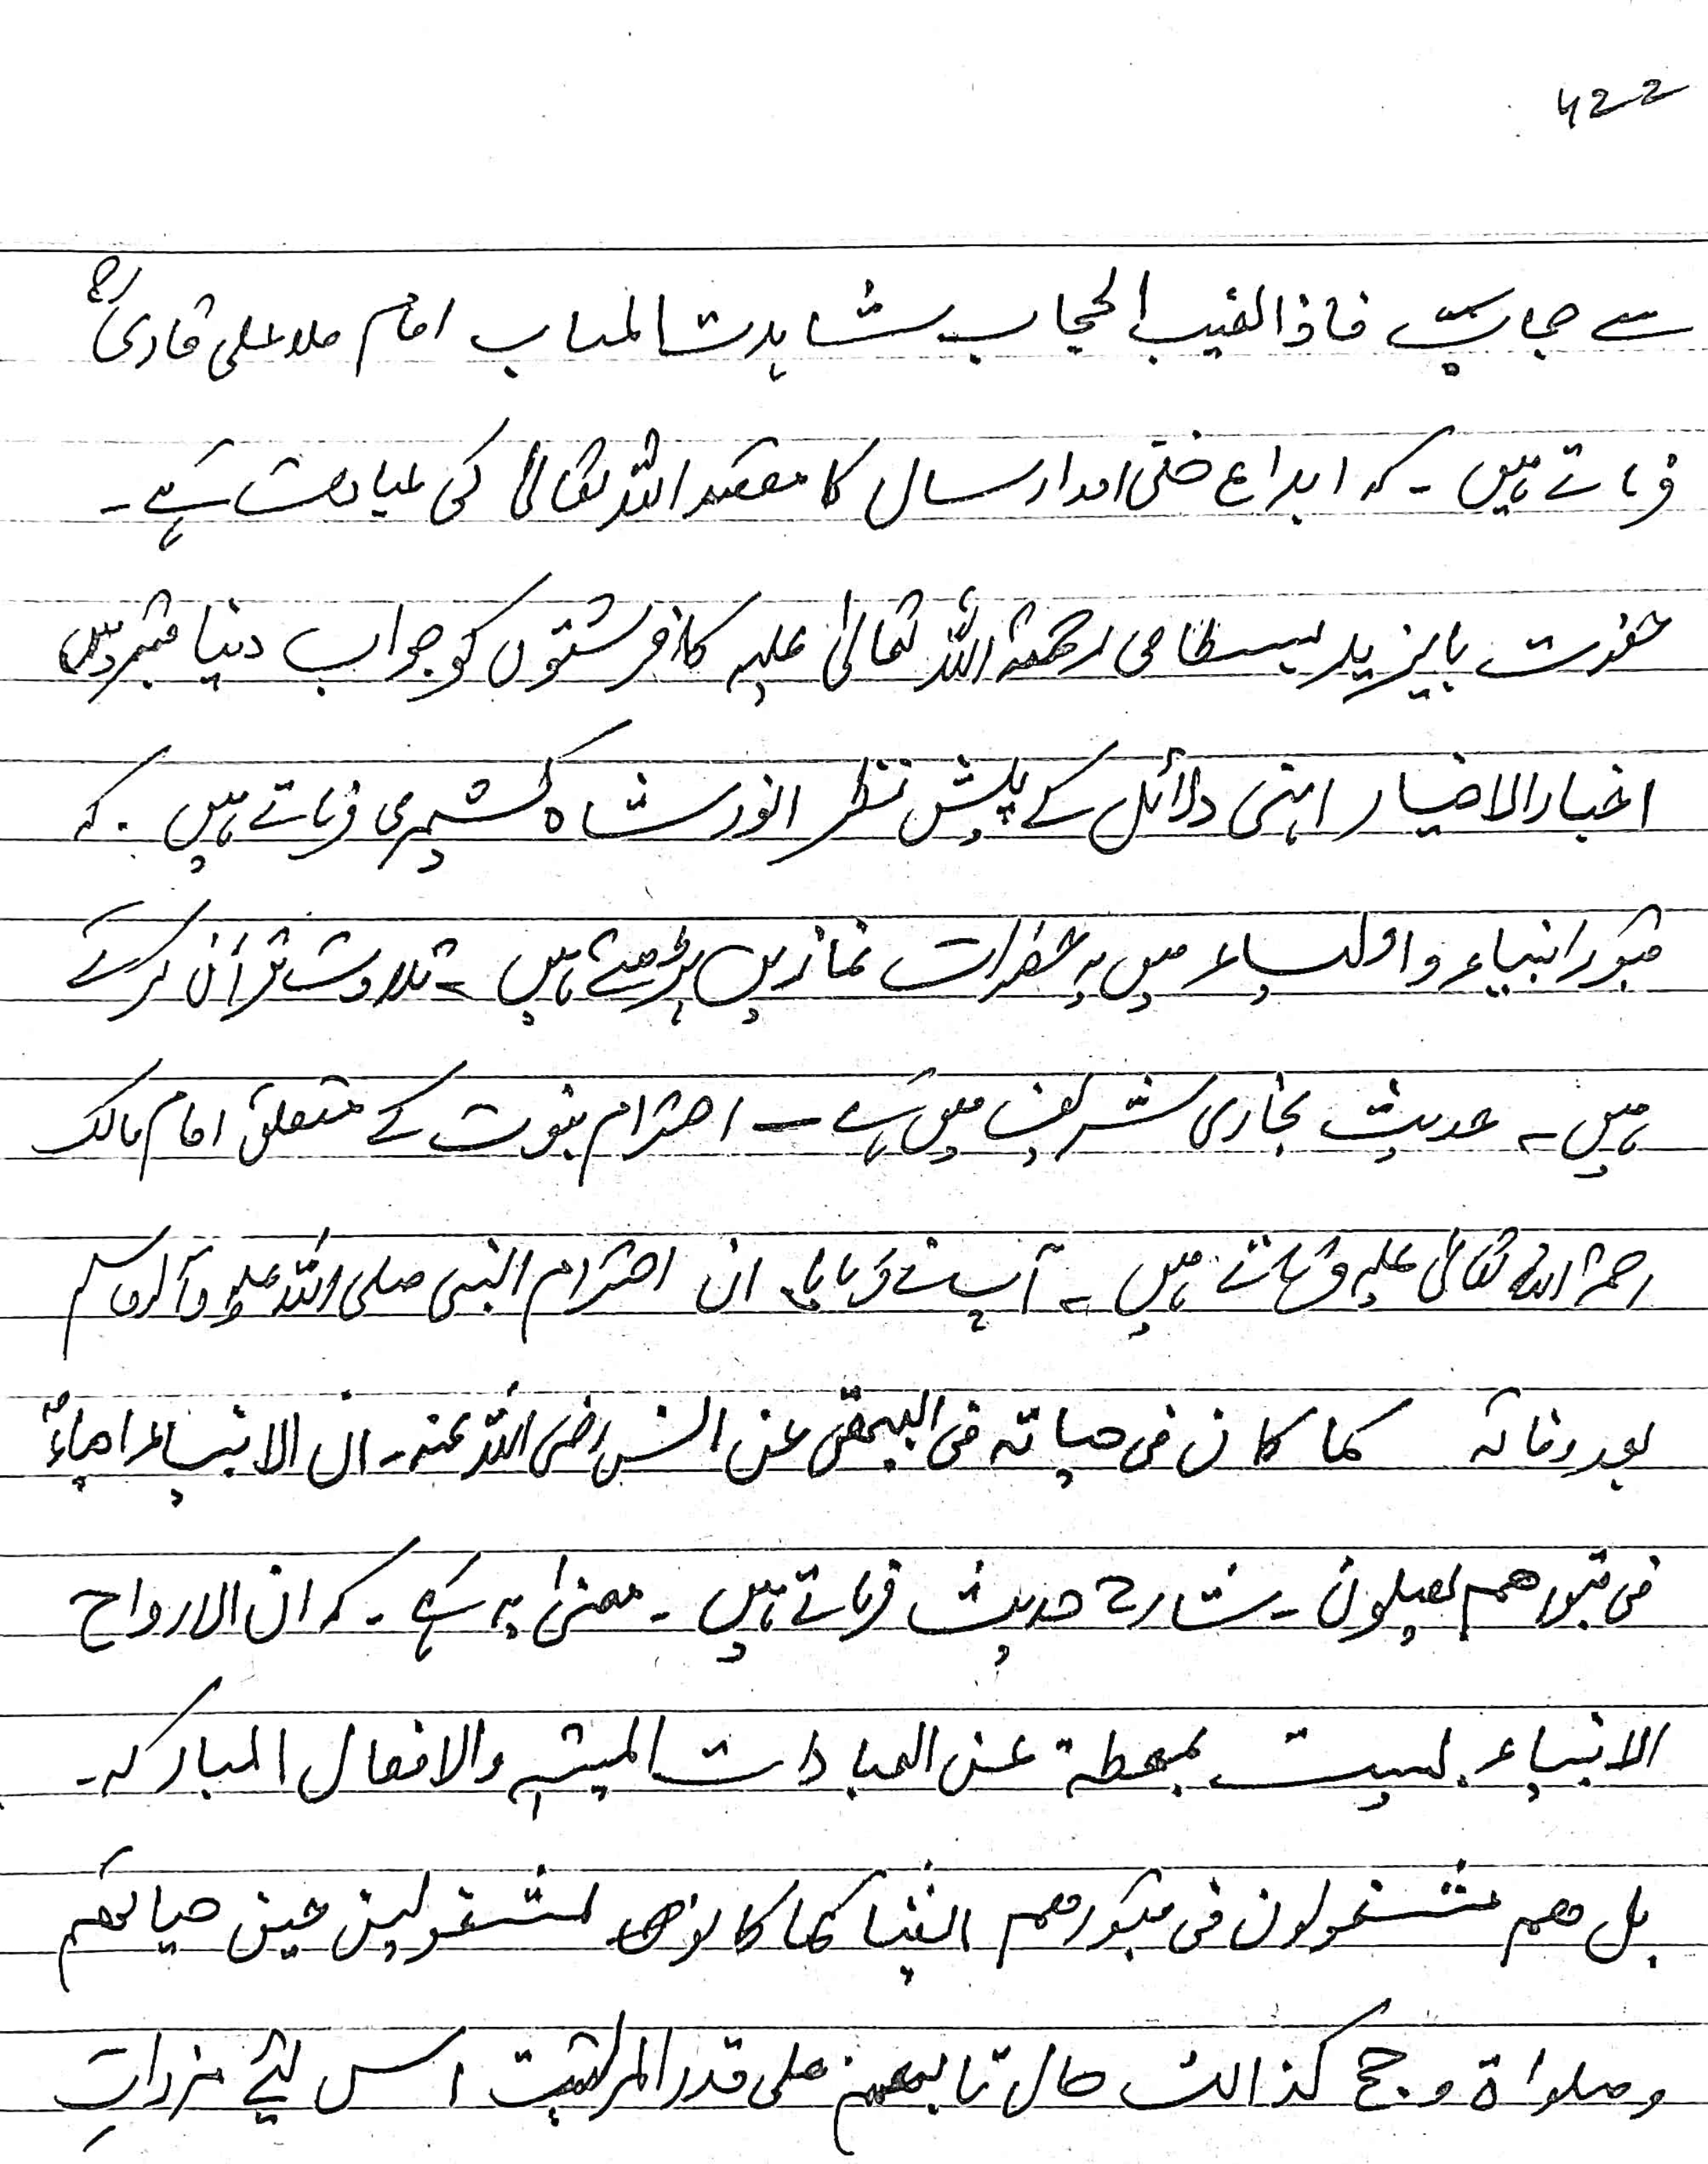 422
سے حجاب فاذا لقیب الحجاب شاہدت المناب امام ملا علی قاری رح
فرماتے ہیں ۔ کہ ابداع خلق اور ارسال کا مقصد اللہ تعالیٰ کی عبادت ہے ۔
حضرت بایزید بسطامی رحمۃ اللہ تعالیٰ علیہ کا فرشتوں کو جواب دینا قبر میں
اخبار الاخیار اہنی دلائل کے پیش نظر انور شاہ کشمیری فرماتے ہیں ۔ کہ
قبور انبیاء و اولیاء میں یہ حضرات نمازیں پڑھتے ہیں ۔ تلاوت قرآن کرتے
ہیں ۔ حدیث بخاری شریف میں ہے ۔ احترام نبوت کے متعلق امام مالک
رحمۃ اللہ تعالیٰ علیہ فرماتے ہیں ۔ آپ نے فرمایا ان احترام النبی صلی اللہ علیہ وآلہ وسلم
بعد وفاتہ کما کان فی حیاتہ فی البیھقی عن انس رضی اللہ عنہ ۔ ان الانبیاء احیاءٌ
فی قبورھم یصلون ۔ شارح حدیث فرماتے ہیں ۔ معنیٰ یہ ہے ۔ کہ ان الارواح
الانبیاء لیست بمعطلۃ عن العبادات والافعال المبارکہ ۔
بل ھم مشغولون فی قبورھم ایضا کما کانو مشغولین حین حیاتھم
وصلواۃ و حج کذالک حال تابعھم علی قدر المراتبت اس لئیے مزراتِ